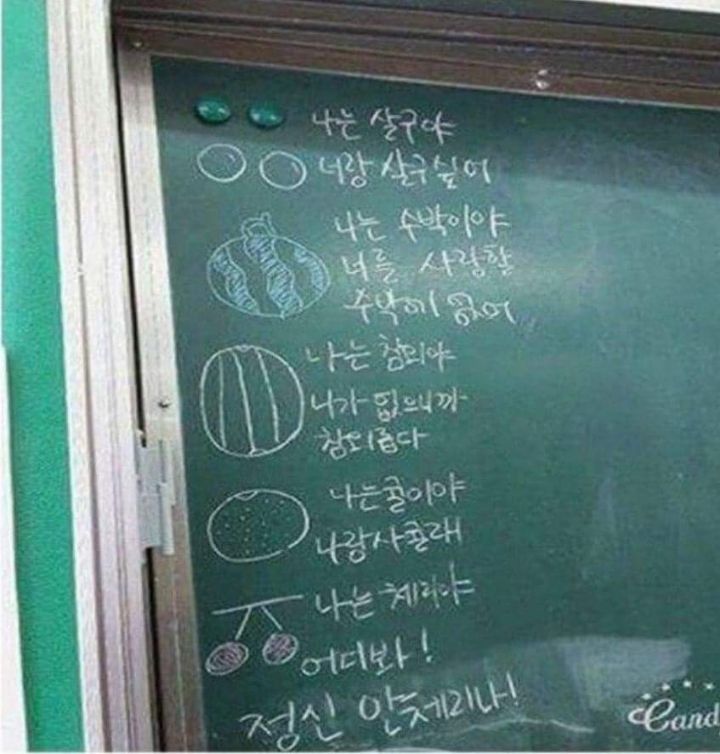 나는 살구야
너랑 살구싶어
나는 수박이야
너를 사랑할
수박에 없어
나는 참외야
니가 없으니까
참외롭다
나는귤이야
나랑사귤래
나는 체리야
어디봐!
정신 안체리나!
Cand